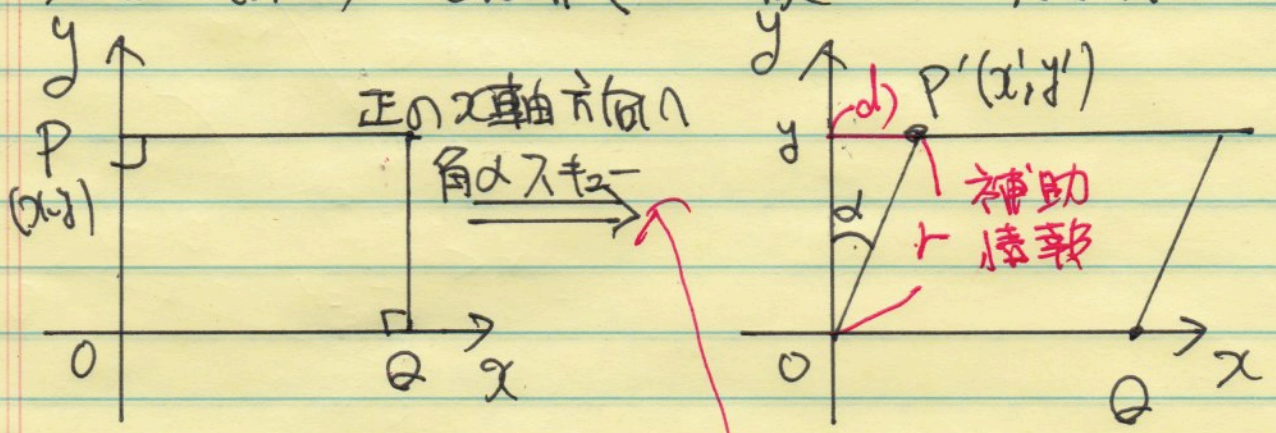 y
P
(x,y)
O
Q
x
正のx軸方向へ
角αスキュー
y
y
d
P'(x',y')
α
r
補助
情報
O
Q
x